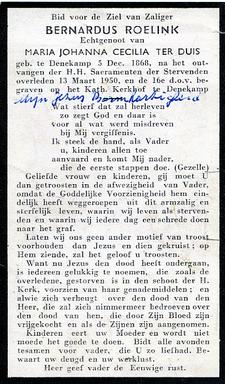 Bid voor de Ziel van Zaliger
BERNARDUS ROELINK
Echtgenoot van
MARIA JOHANNA CECILIA TER DUIS
geb. te Denekamp 5 Dec. 1868, na het ont-
vangen der H.H. Sacramenten der Stervenden
overleden 13 Maart 1950, en de 16e d.o.v. be-
graven op het Kath. Kerkhof te Denekamp
Mijn Jezus Barmhartigheid
Wat stierf dat zal herleven
zo zegt God en daar is
voor al wat werd misdreven
bij Mij vergiffenis.
Ik steek de hand, als Vader
u, kinderen allen toe
aanvaard en komt Mij nader,
die de eerste stappen doe. (Gezelle)
Geliefde vrouw en kinderen, gij moet U
dan getroosten in de afwezigheid van Vader,
omdat de Goddelijke Voorzienigheid hem einde-
lijk heeft weggeroepen uit dit armzalig en
sterfelijk leven, waarin wij leven als sterven-
den en waarin wij iedere dag een schrede doen
naar het graf.
Laten wij ons geen ander motief van troost
voorhouden dan Jezus en dien gekruist; op
Hem ziende, zal het lot U troosten.
Want nu Jezus den dood heeft ondergaan,
is iedereen gelukkig te noemen, die zoals de
overledene, gestorven is in den schoot der H.
Kerk, voorzien van haar genademiddelen; en
alwie zich verheugt over den dood van den
Heer, die zal zich nimmermeer bedroeven over
den dood van hen, die door Zijn Bloed zijn
vrijgekocht en als de Zijnen zijn aangenomen.
Kinderen eert uw Moeder en wordt niet
moede het goede te doen. Bidt alle avonden
tesamen voor vader, die U zo liefhad. Be-
waart uw deugd en uw werklust.
Heer geef vader de Eeuwige rust.